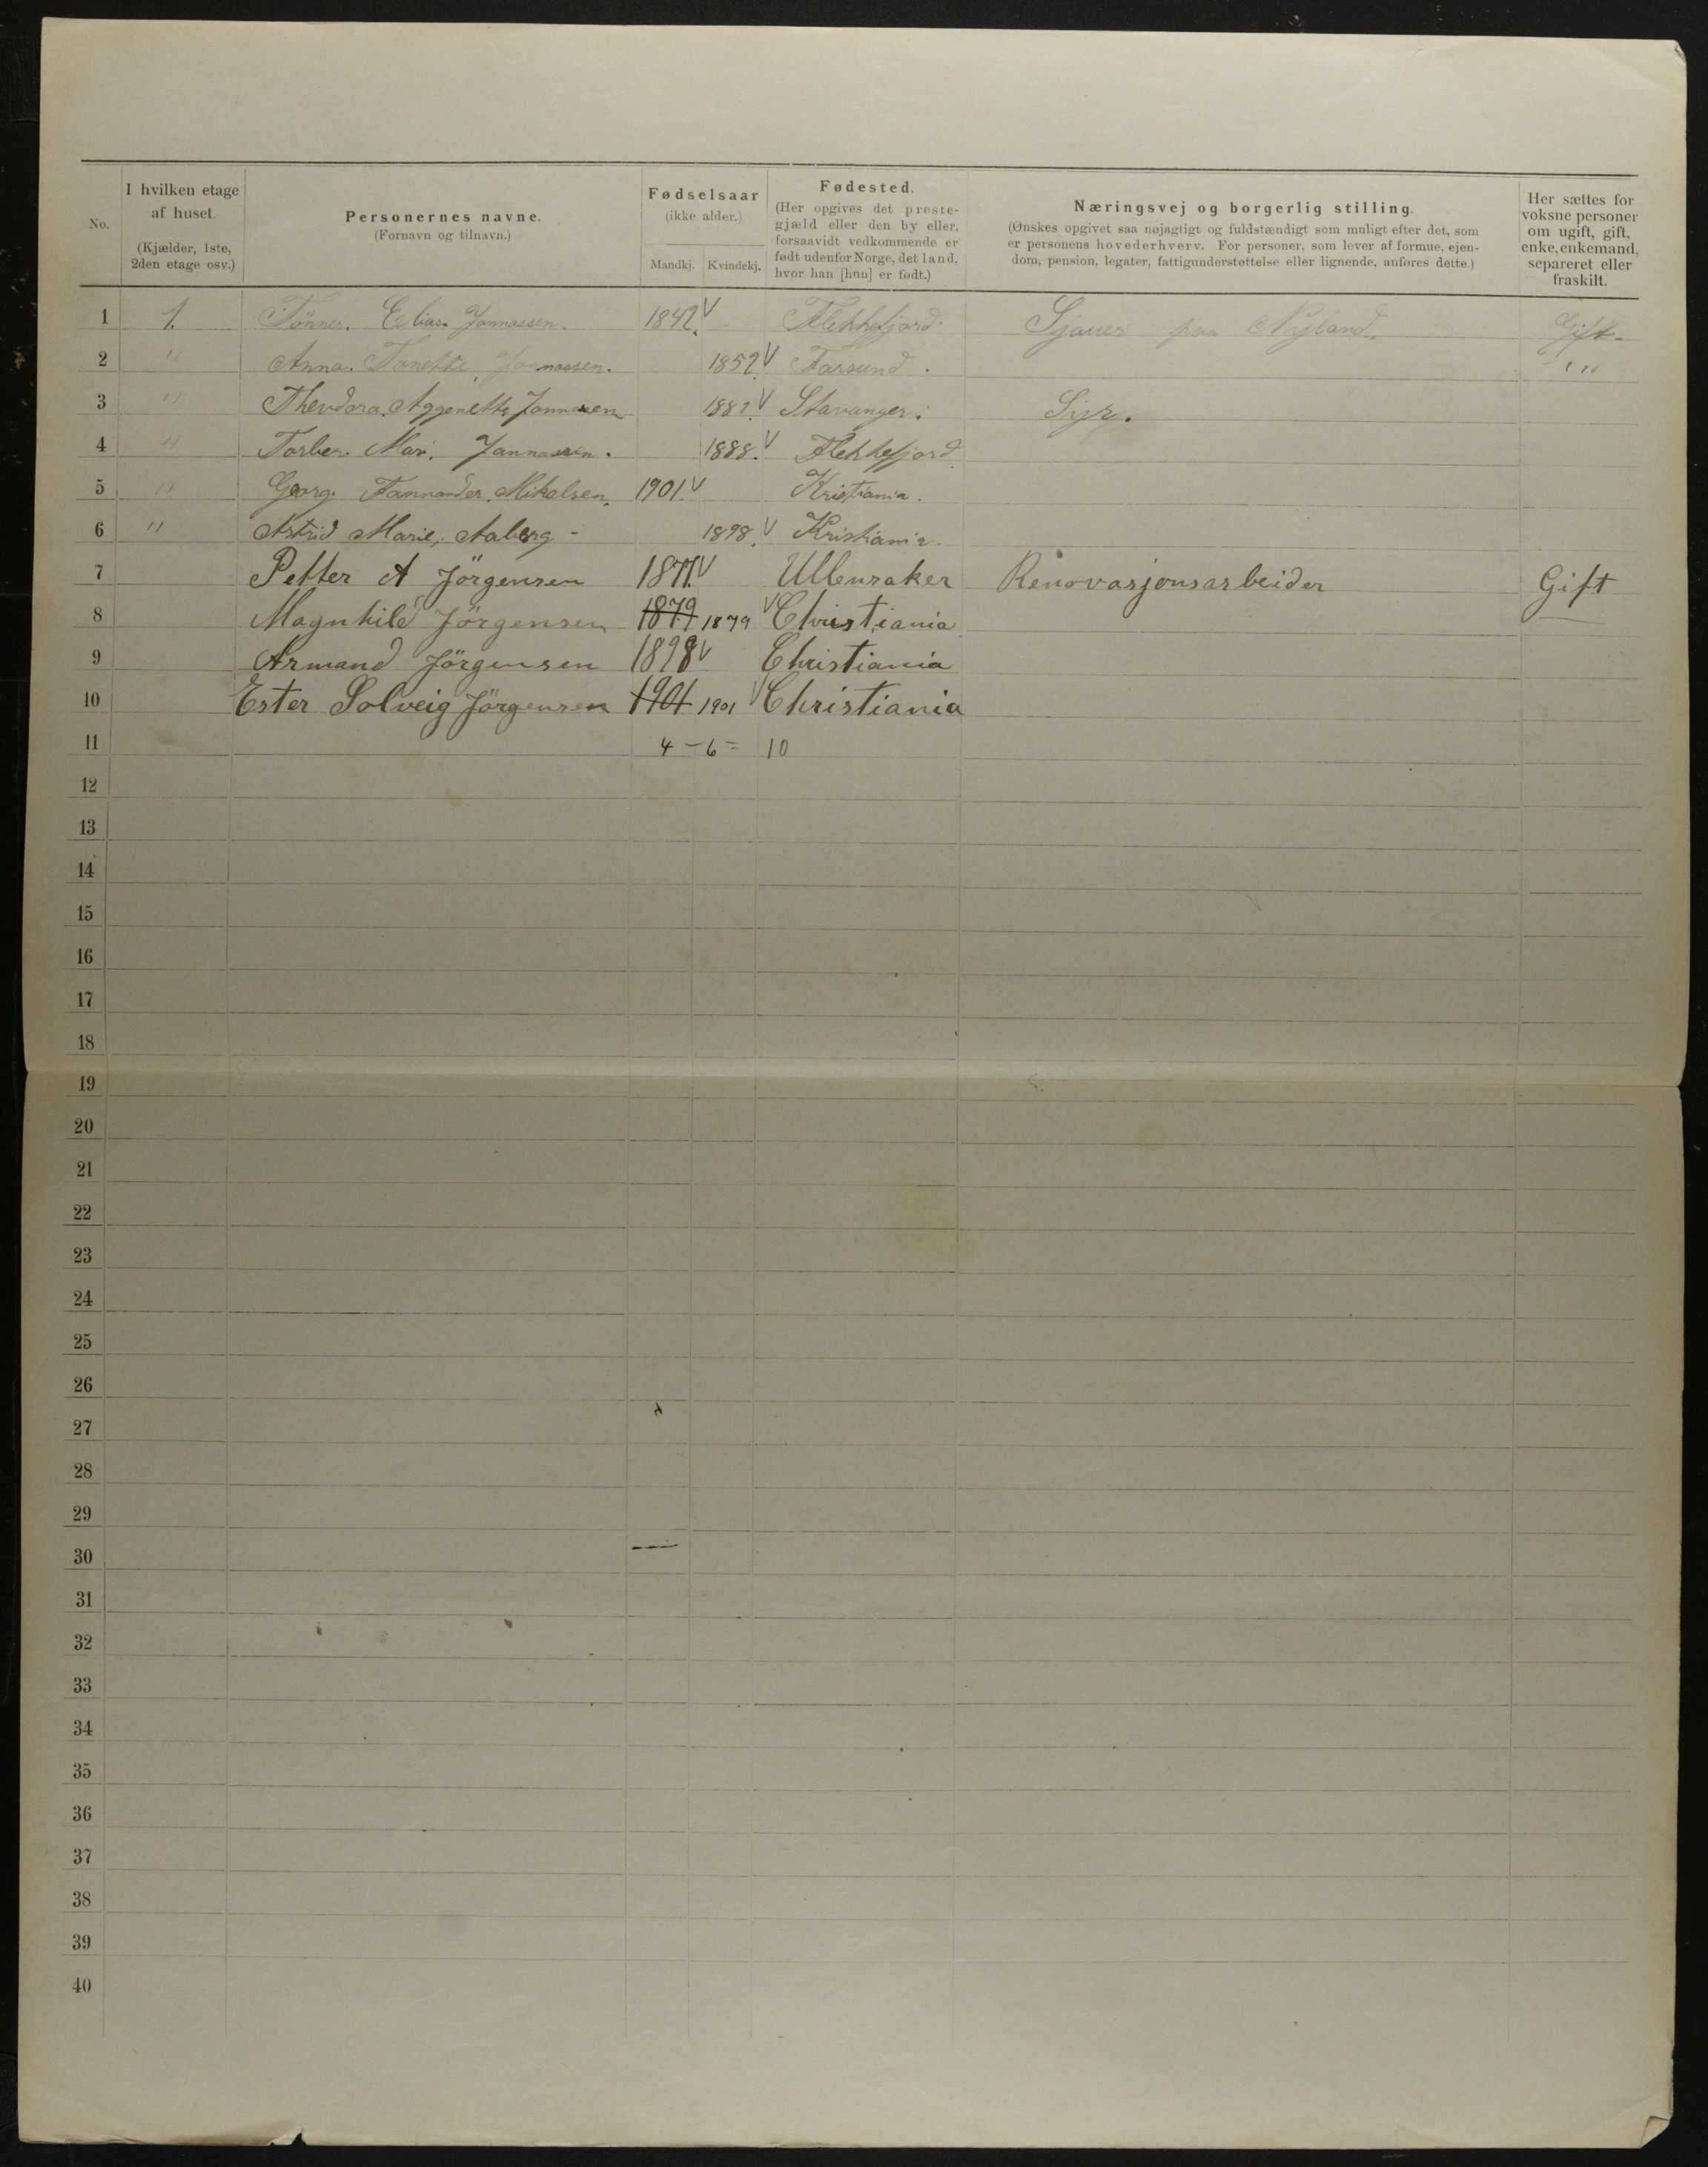 No.
I hvilken etage af huset. (Kjælder, 1ste, 2den etage osv.)
Personernes navne. (Fornavn og tilnavn.)
Fødselsaar (ikke alder.) Mandkj. Kvindekj.
Fødested. (Her opgives det prestegjæld eller den by eller, forsaavidt vedkommende er født udenfor Norge, det land, hvor han [hun] er født.)
Næringsvej og borgerlig stilling. (Ønskes opgivet saa nøjagtigt og fuldstændigt som muligt efter det, som er personens hovederhverv. For personer, som lever af formue, ejendom, pension, legater, fattigunderstøttelse eller lignende, anføres dette.)
Her sættes for voksne personer om ugift, gift, enke, enkemand, separeret eller fraskilt.
1 1. Tönnes. Elias. Jonnassen. 1842. V Flekkefjord. Sjauer paa Nyland. Gift.
2 " Anna. Tonette. Jonnassen. 1852. V Farsund. "
3 " Thevdora. Aggenette Jonnassen 1882. V Stavanger. Syr.
4 " Torber. Mari. Jonnassen. 1888. V Flekkefjord.
5 " Georg. Mikalsen. 1901. V Kristiania.
6 " Astrid Marie, Aaberg - 1898. V Kristiania.
7 Petter A Jörgensen 1877. V Ullensaker Renovasjonsarbeider Gift
8 Magnhild Jörgensen 1879 1879 V Christiania
9 Armand Jörgensen 1898 V Christiania
10 Ester Solveig Jörgensen 1901 1901 V Christiania
11 4 - 6 = 10
12
13
14
15
16
17
18
19
20
21
22
23
24
25
26
27
28
29
30
31
32
33
34
35
36
37
38
39
40